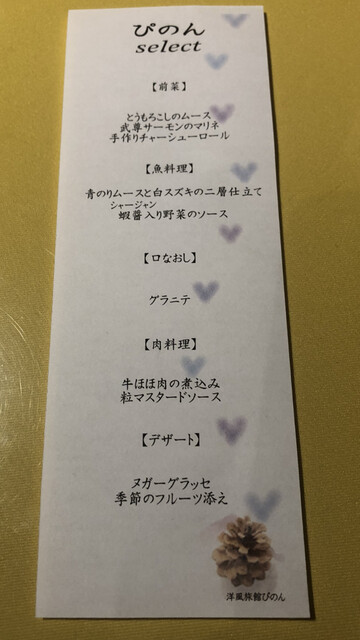 ぴのん
select
【前菜】
とうもろこしのムース
武尊サーモンのマリネ
手作りチャーシューロール
【魚料理】
青のりムースと白スズキの二層仕立て
シャージャン
蝦醬入り野菜のソース
【口なおし】
グラニテ
【肉料理】
牛ほほ肉の煮込み
粒マスタードソース
【デザート】
ヌガーグラッセ
季節のフルーツ添え
洋風旅館ぴのん